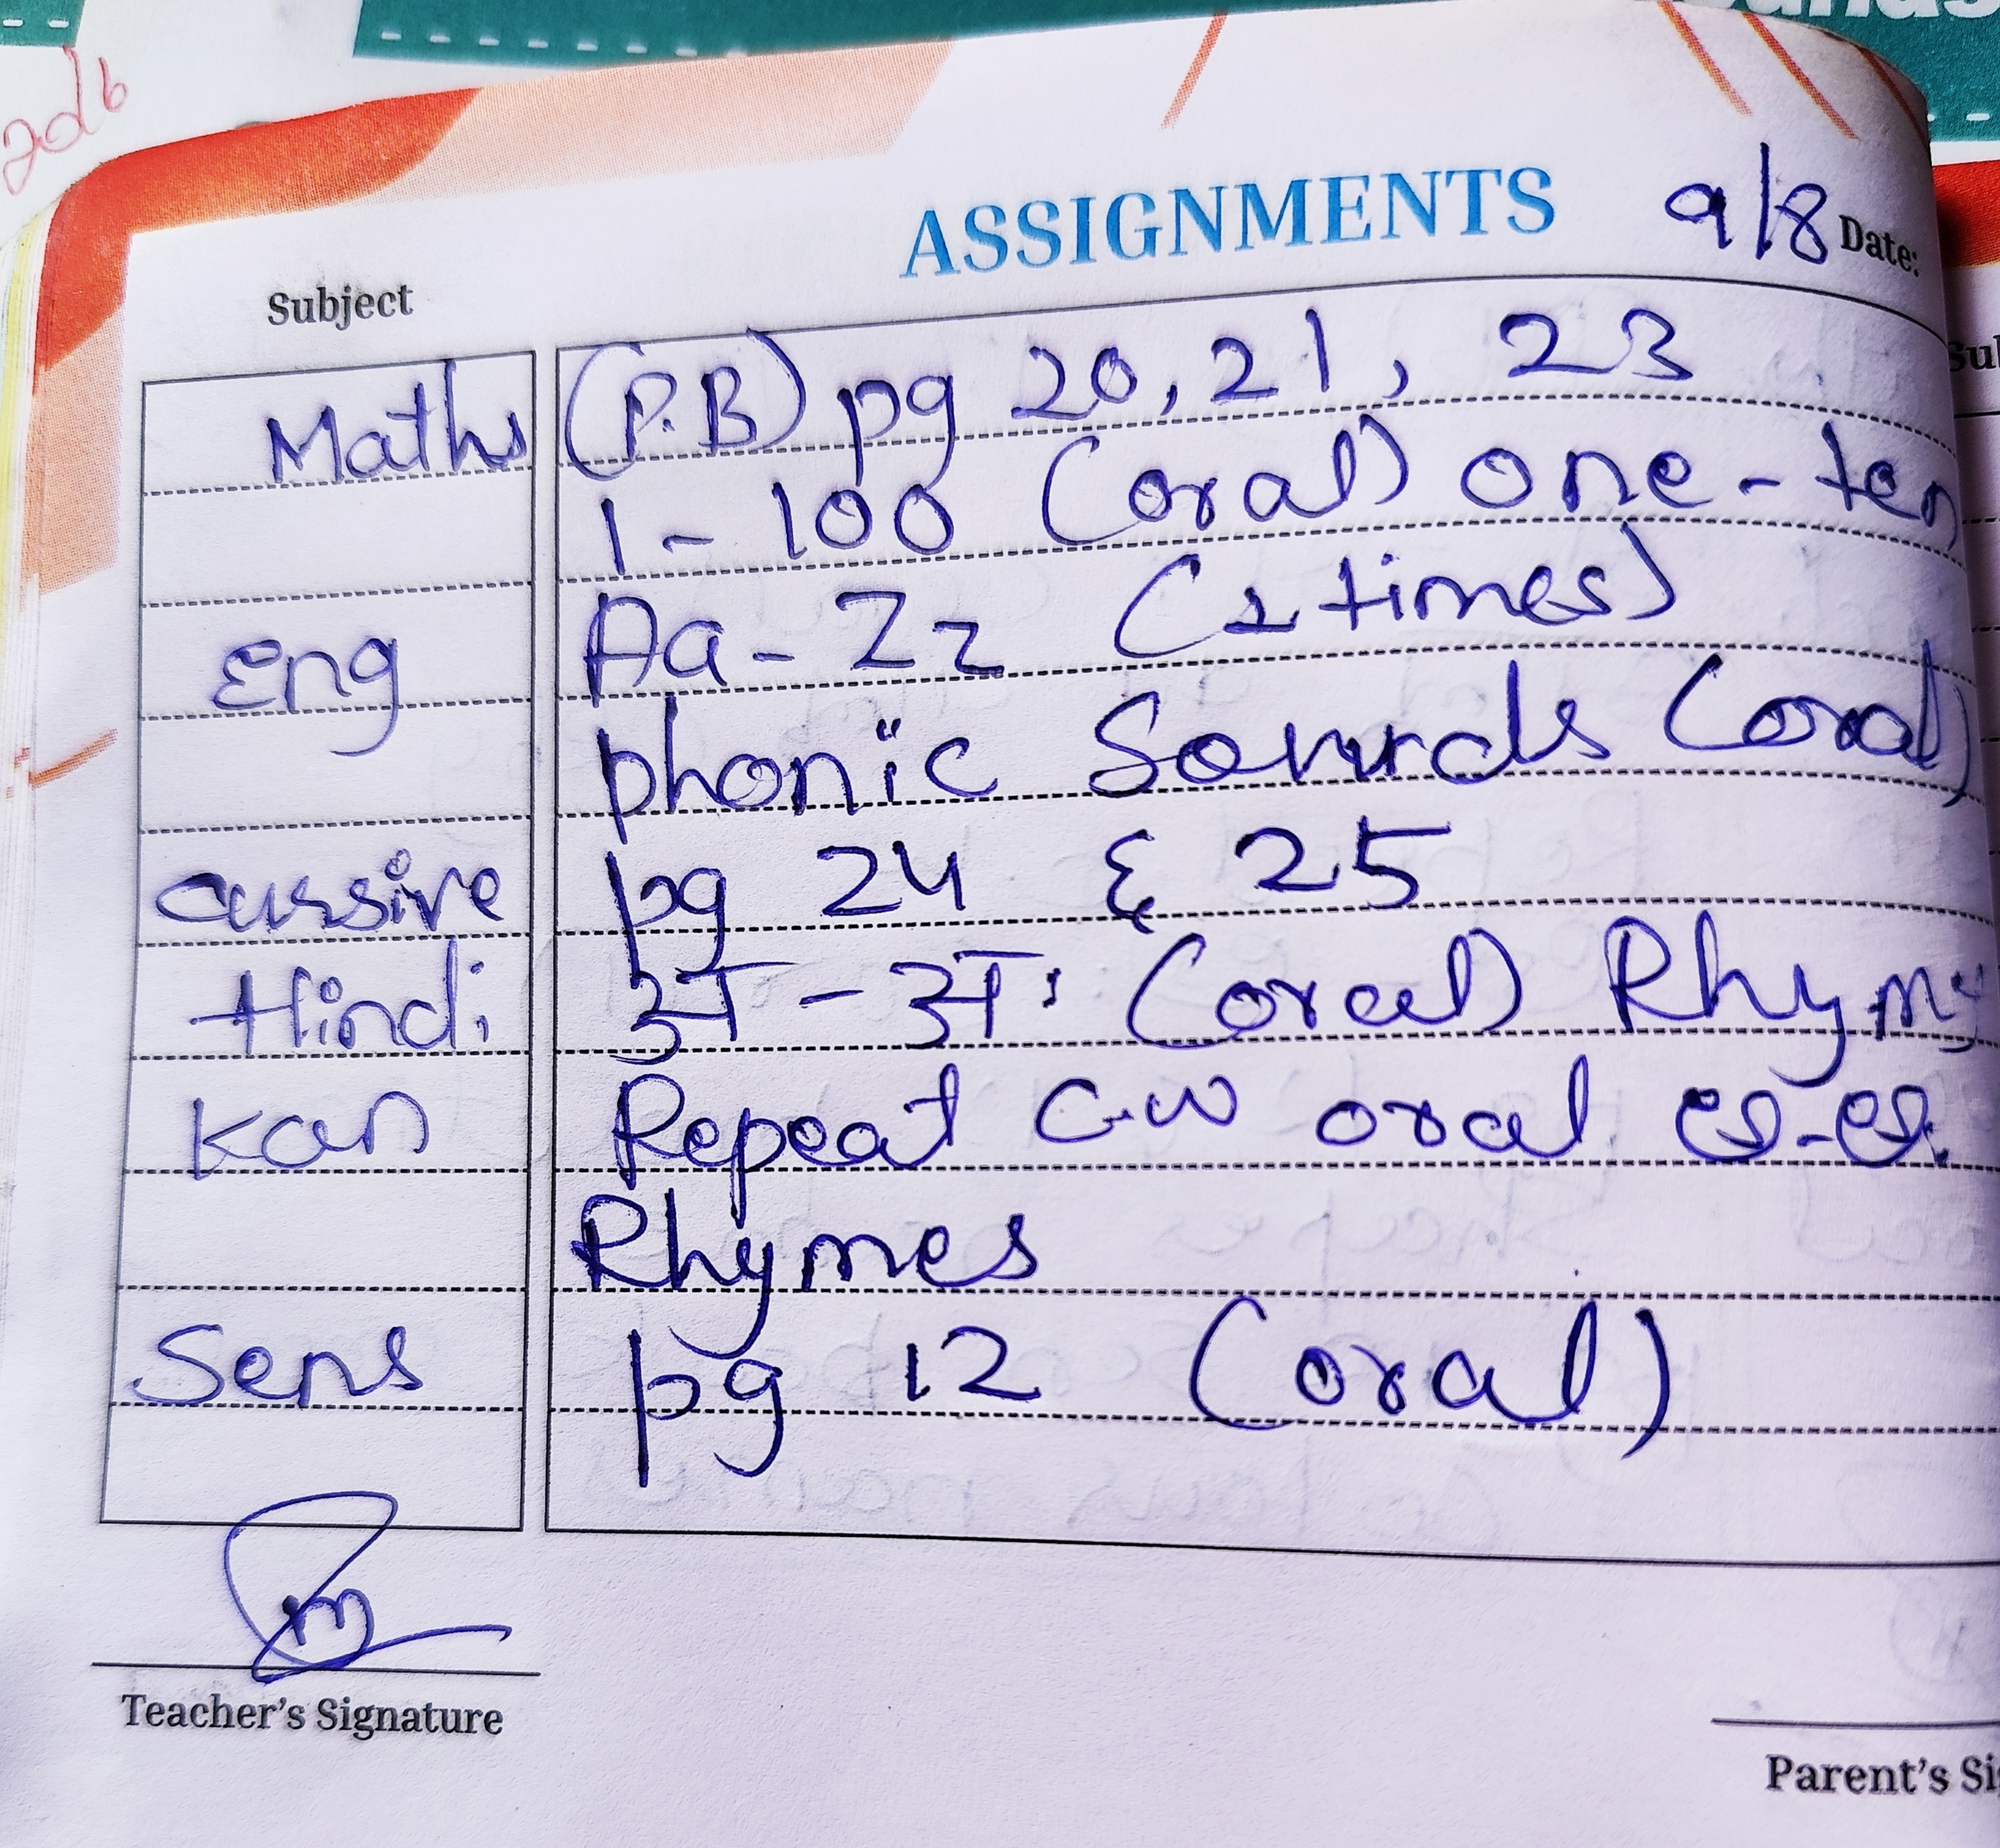 ASSIGNMENTS 9/8 Date:
Subject
Maths (P.B) pg 20, 21, 23
1 - 100 (oral) one - ten
Eng Aa - Zz (2 times)
phonic Sounds (oral)
cursive pg 24 & 25
Hindi अ - अः (oral)
Kan Repeat C.W oral ಅ-ಅಃ
Rhymes
Sens pg 12 (oral)
Teacher's Signature
Parent's